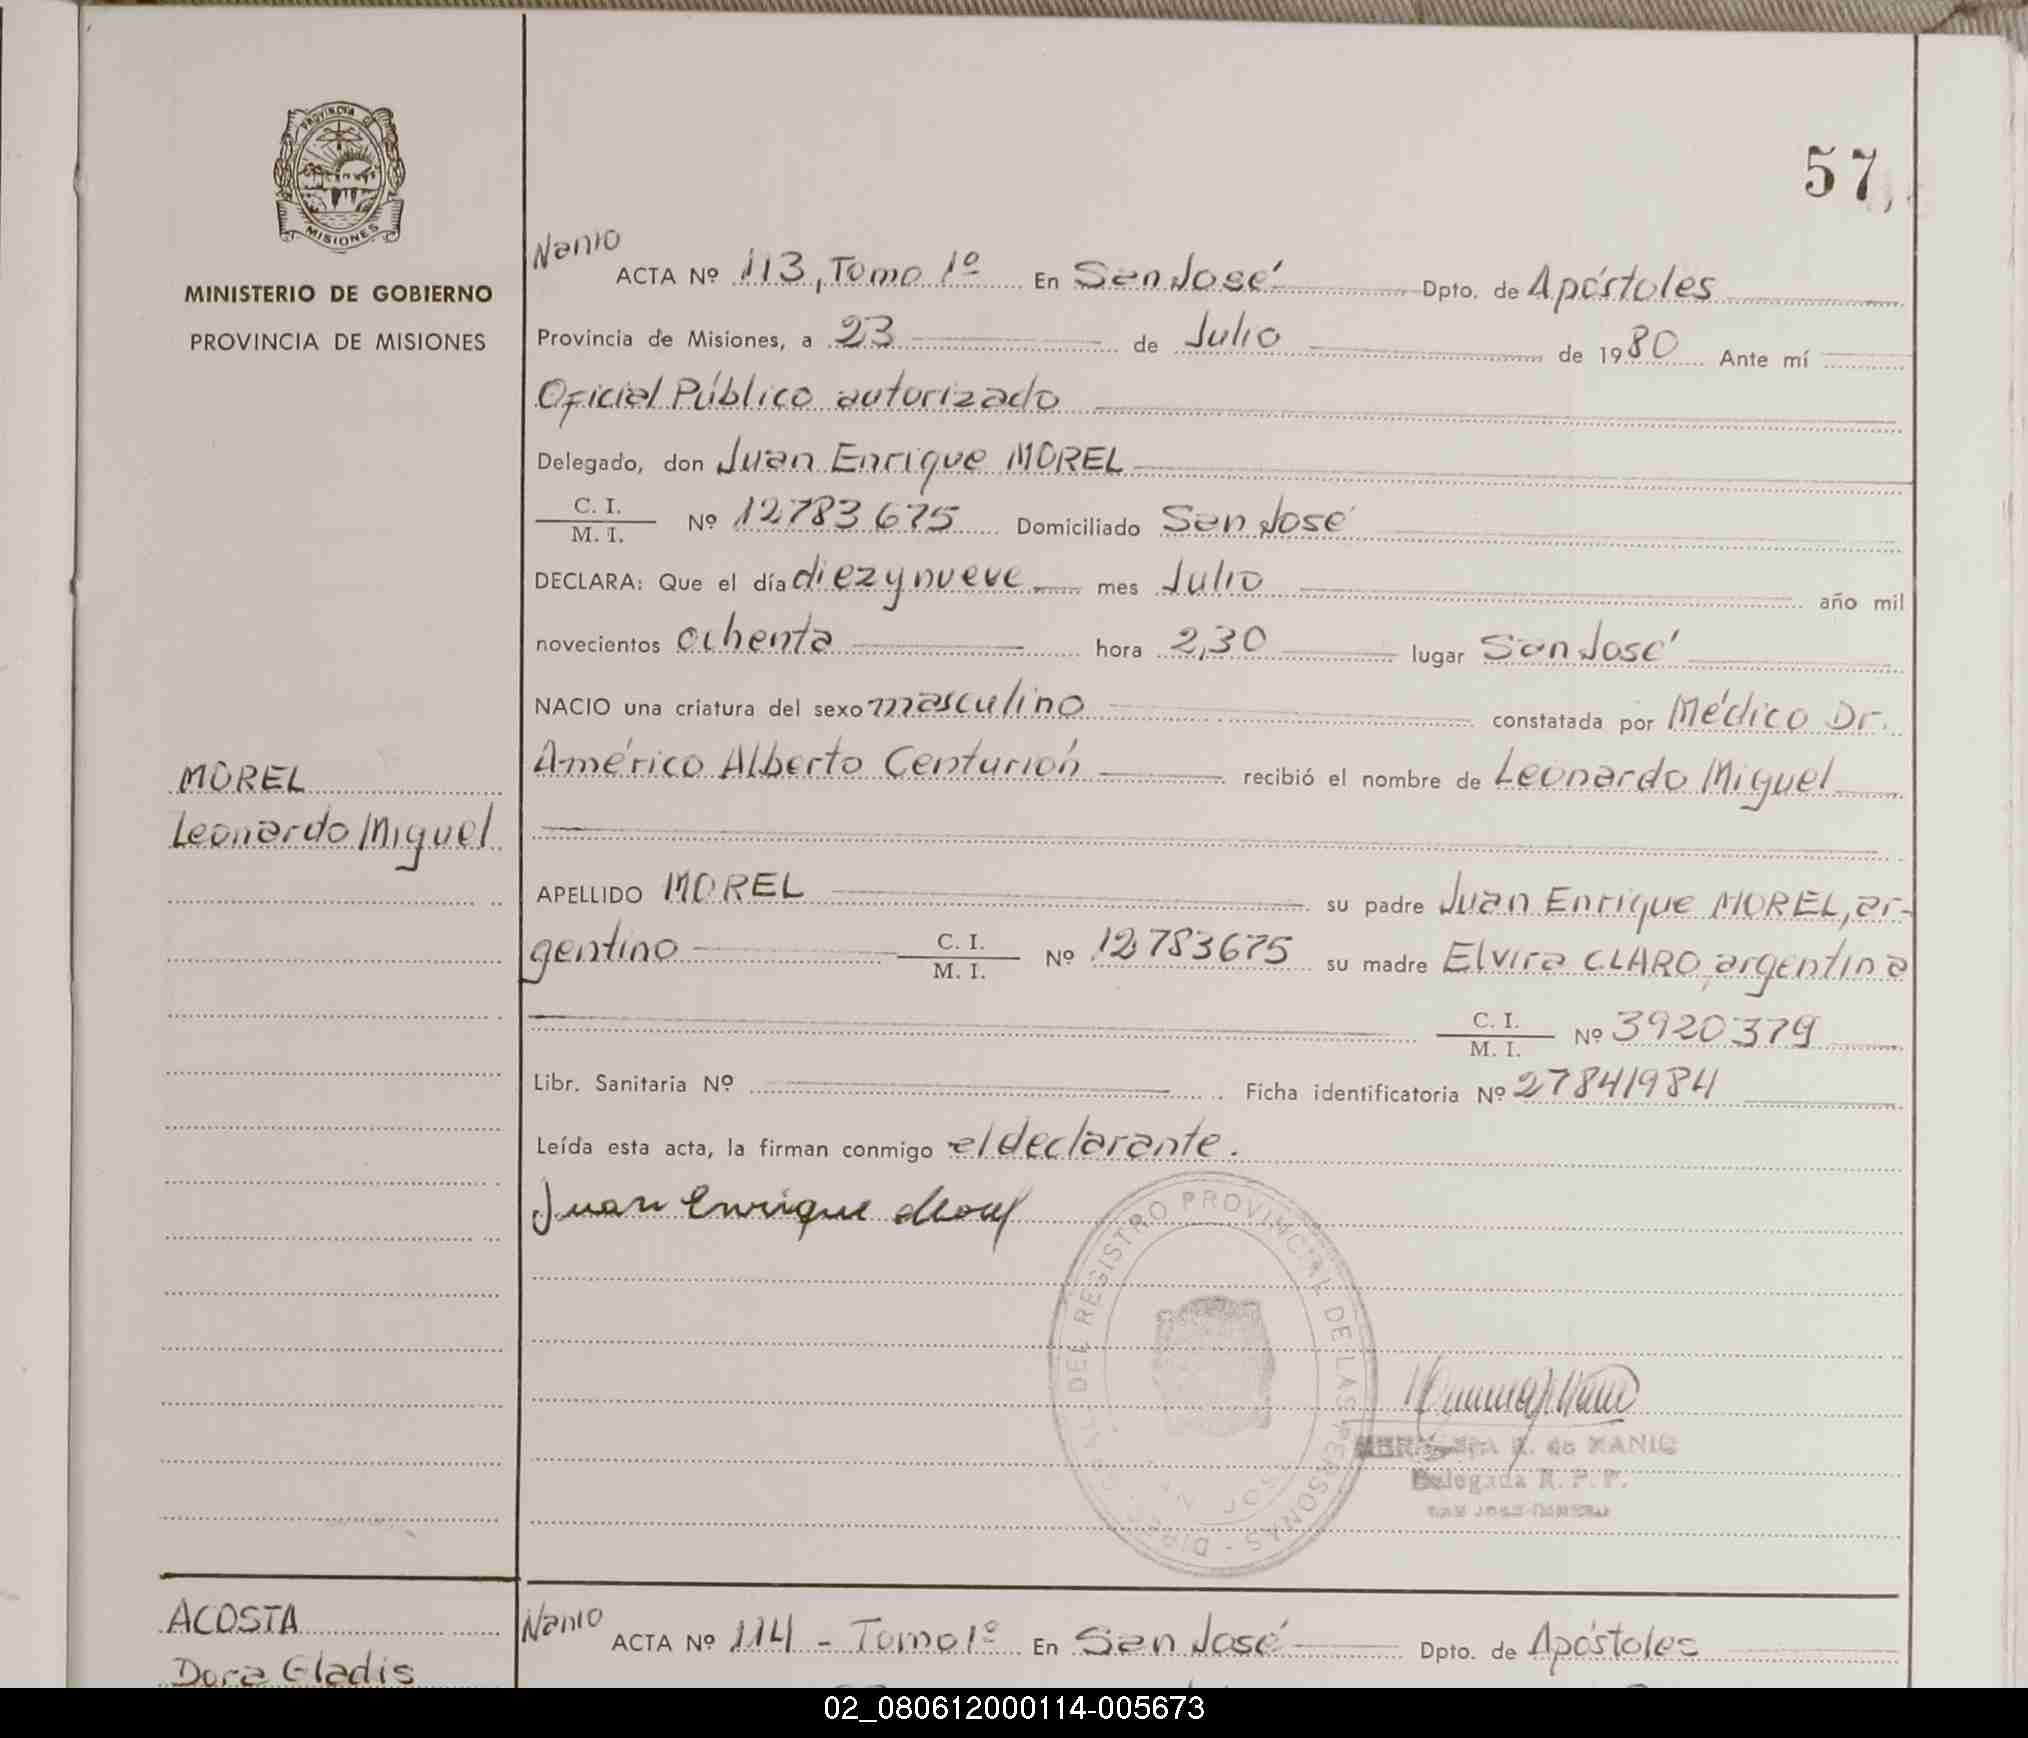 PROVINCIA DE
MISIONES
MINISTERIO DE GOBIERNO
PROVINCIA DE MISIONES
57
Nanio
ACTA Nº 113, Tomo 1º En San José Dpto. de Apóstoles
Provincia de Misiones, a 23 de Julio de 1980 Ante mí
Oficial Público autorizado
Delegado, don Juan Enrique MOREL
C. I.
M. I. Nº 12783675 Domiciliado San José
DECLARA: Que el día diez y nueve mes Julio año mil
novecientos ochenta hora 2,30 lugar San José
NACIO una criatura del sexo masculino constatada por Médico Dr.
Américo Alberto Centurión recibió el nombre de Leonardo Miguel
MOREL
Leonardo Miguel
APELLIDO MOREL su padre Juan Enrique MOREL, ar-
gentino C. I. M. I. Nº 12783675 su madre Elvira CLARO, argentina
C. I. M. I. Nº 3920379
Libr. Sanitaria Nº Ficha identificatoria Nº 27841984
Leída esta acta, la firman conmigo el declarante.
Juan Enrique Morel
DEL REGISTRO PROVINCIAL DE LAS PERSONAS
de NANIO
Delegada R. P. P.
ACOSTA
Dora Gladis
Nanio
ACTA Nº 114 - Tomo 1º En San José Dpto. de Apóstoles
02_080612000114-005673